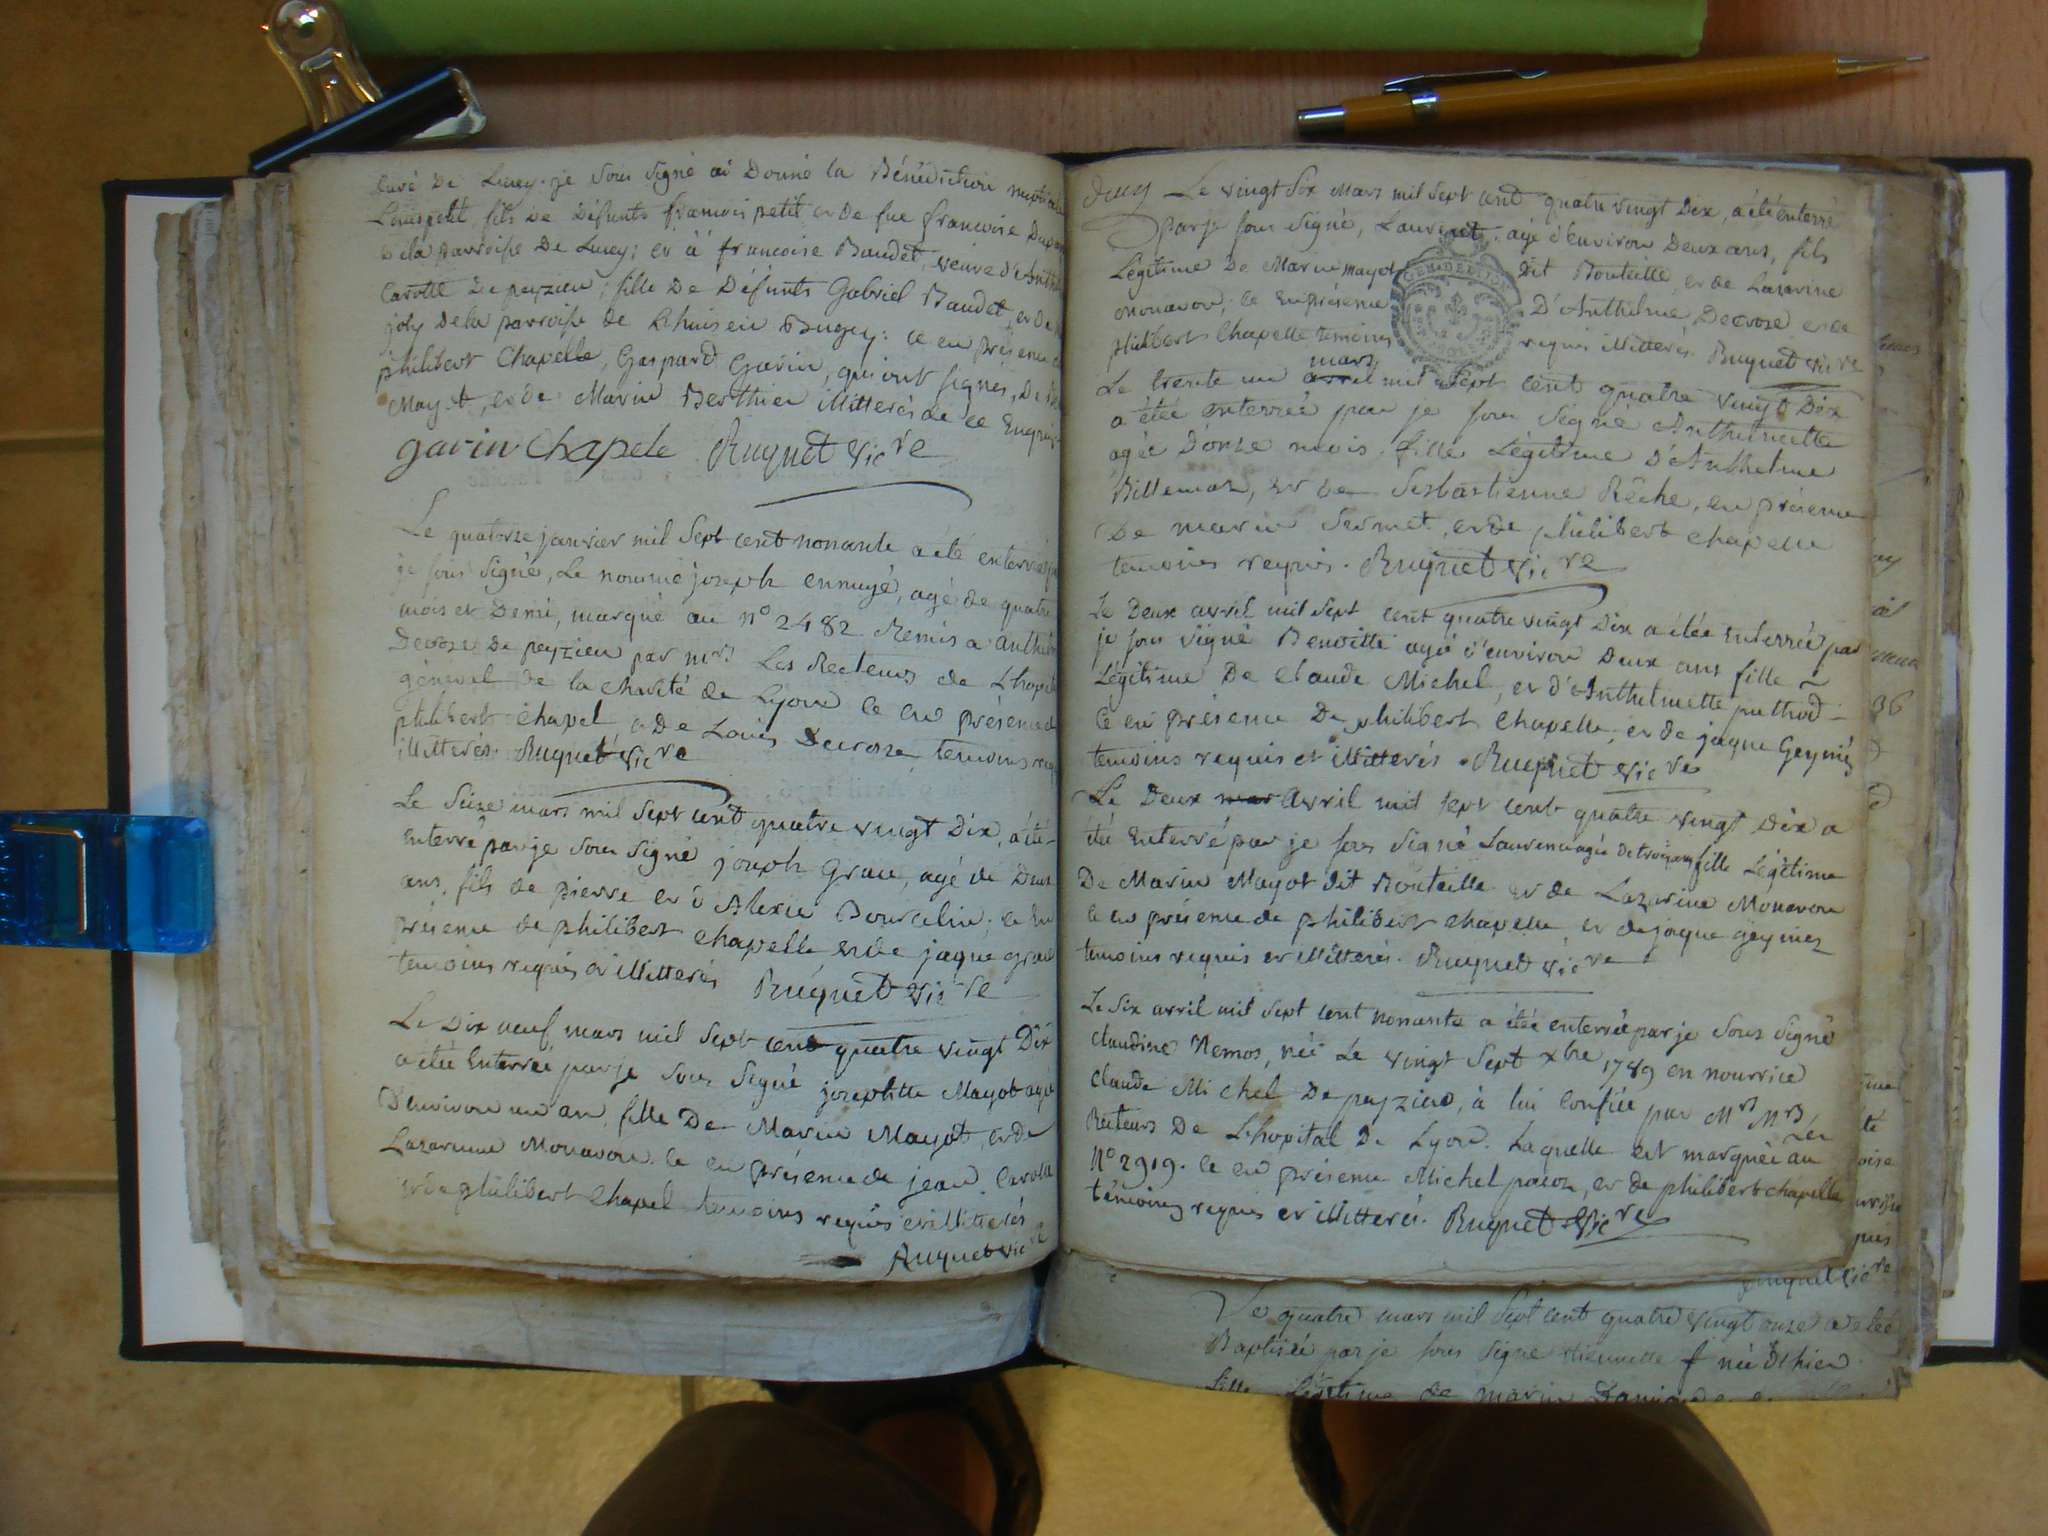 curé De Lucey. je sous signé ai Donné la Bénédiction nuptiale
Louis petit, fils De Défunts francois petit et de fue francoise
De la parroisse De Lucey; et à francoise Baudet, veuve d'Anth
Carotte De peyzieu; fille De Défunts Gabriel Baudet, et de
joly De la parroisse de Lhuis en Bugey: ce en présence
philibert Chapelle, Gaspard Gavin, qui ont signés, De
Mayot, et de Marin Berthier illitterés de ce Enquis
gavin Chapele Ruquet vic re
Le quatorze janvier mil Sept cent nonante a été enterré par
je sous Signé, Le nommé joseph ennuyé, agé de quatre
mois et Demi, marqué au N° 2482 Remis a anthel
Decroze De peyzieu par mrs Les Recteurs de L'hopital
géneral De la charité de Lyon ce en présence de
philibert Chapel et De Louis Decroze, temoins req
illitterés. Ruquet vic re
Le Seize mars mil Sept cent quatre vingt Dix, a été
Enterré par je Sous Signé joseph Grau, agé de Deux
ans, fils de pierre et d'Alexie Bourcelin; ce En
présence de philibert Chapelle et de jaque grau
temoins requis et illitterés Ruquet vic re
Le Dix neuf mars mil Sept cent quatre vingt Dix
a étée Enterrée par je Sous Signé josephtte Mayot agée
D'environ un an, fille De Marin Mayot, et de
Lazarinne Monavon. ce en présence de jean Carotte
et de philibert Chapel temoins requis et illitterés
Ruquet vic re
Le vingt Six Mars mil Sept cent quatre vingt Dix, a été enterré
par je sous Signé, Laurent, agé d'environ Deux ans, fils
Légitime De Marin mayot dit Bouteille, et de Lazarine
monavon; ce En présence D'Anthelme Decroze et de
philibert Chapelle temoins requis illitterés. Ruquet vic re
GEN. DE LYON
mars
Le trente un avril mil Sept cent quatre vingt Dix
a étée enterrée par je sous Signé Anthelmette
agée D'onze mois fille Légitime D'Anthelme
Billemaz, et de Sesbastienne Réche, en présence
De marin Sermet, et de philibert chapelle
temoins requis. Ruquet vic re
Le Deux avril mil Sept cent quatre vingt Dix a étée Enterrée par
je sous Signé Benoitte agée d'environ Deux ans fille
Légitime De Claude Michel, et d'Anthelmette puthod
Ce en présence De philibert Chapelle, et de jaque Geyniez
temoins requis et illitterés. Ruquet vic re
Le Deux mar avril mil sept cent quatre vingt Dix a
été Enterré par je sous Signé Laurence agée de trois ans fille Légitime
De Marin Mayot dit Bouteille et de Lazarine Monavon
ce en présence de philibert chapelle et de jaque geyniez
temoins requis et illitterés. Ruquet vic re
Le Six avril mil Sept cent nonante a étée enterrée par je Sous Signé
Claudine Nemos, née Le vingt Sept xbre 1789 en nourrice
Claude Michel De peyzieu, à lui confiée par Mrs Mrs Les
Recteurs De L'hopital De Lyon. Laquelle est marquée au
N° 2919. ce en présence Michel pacoz, et de philibert chapelle
témoins requis et illitterés. Ruquet vic re
Ruquet vic re
Le quatre mars mil Sept cent quatre vingt onze a étée
Baptisée par je sous Signé née D'hier
fille Légitime de marin